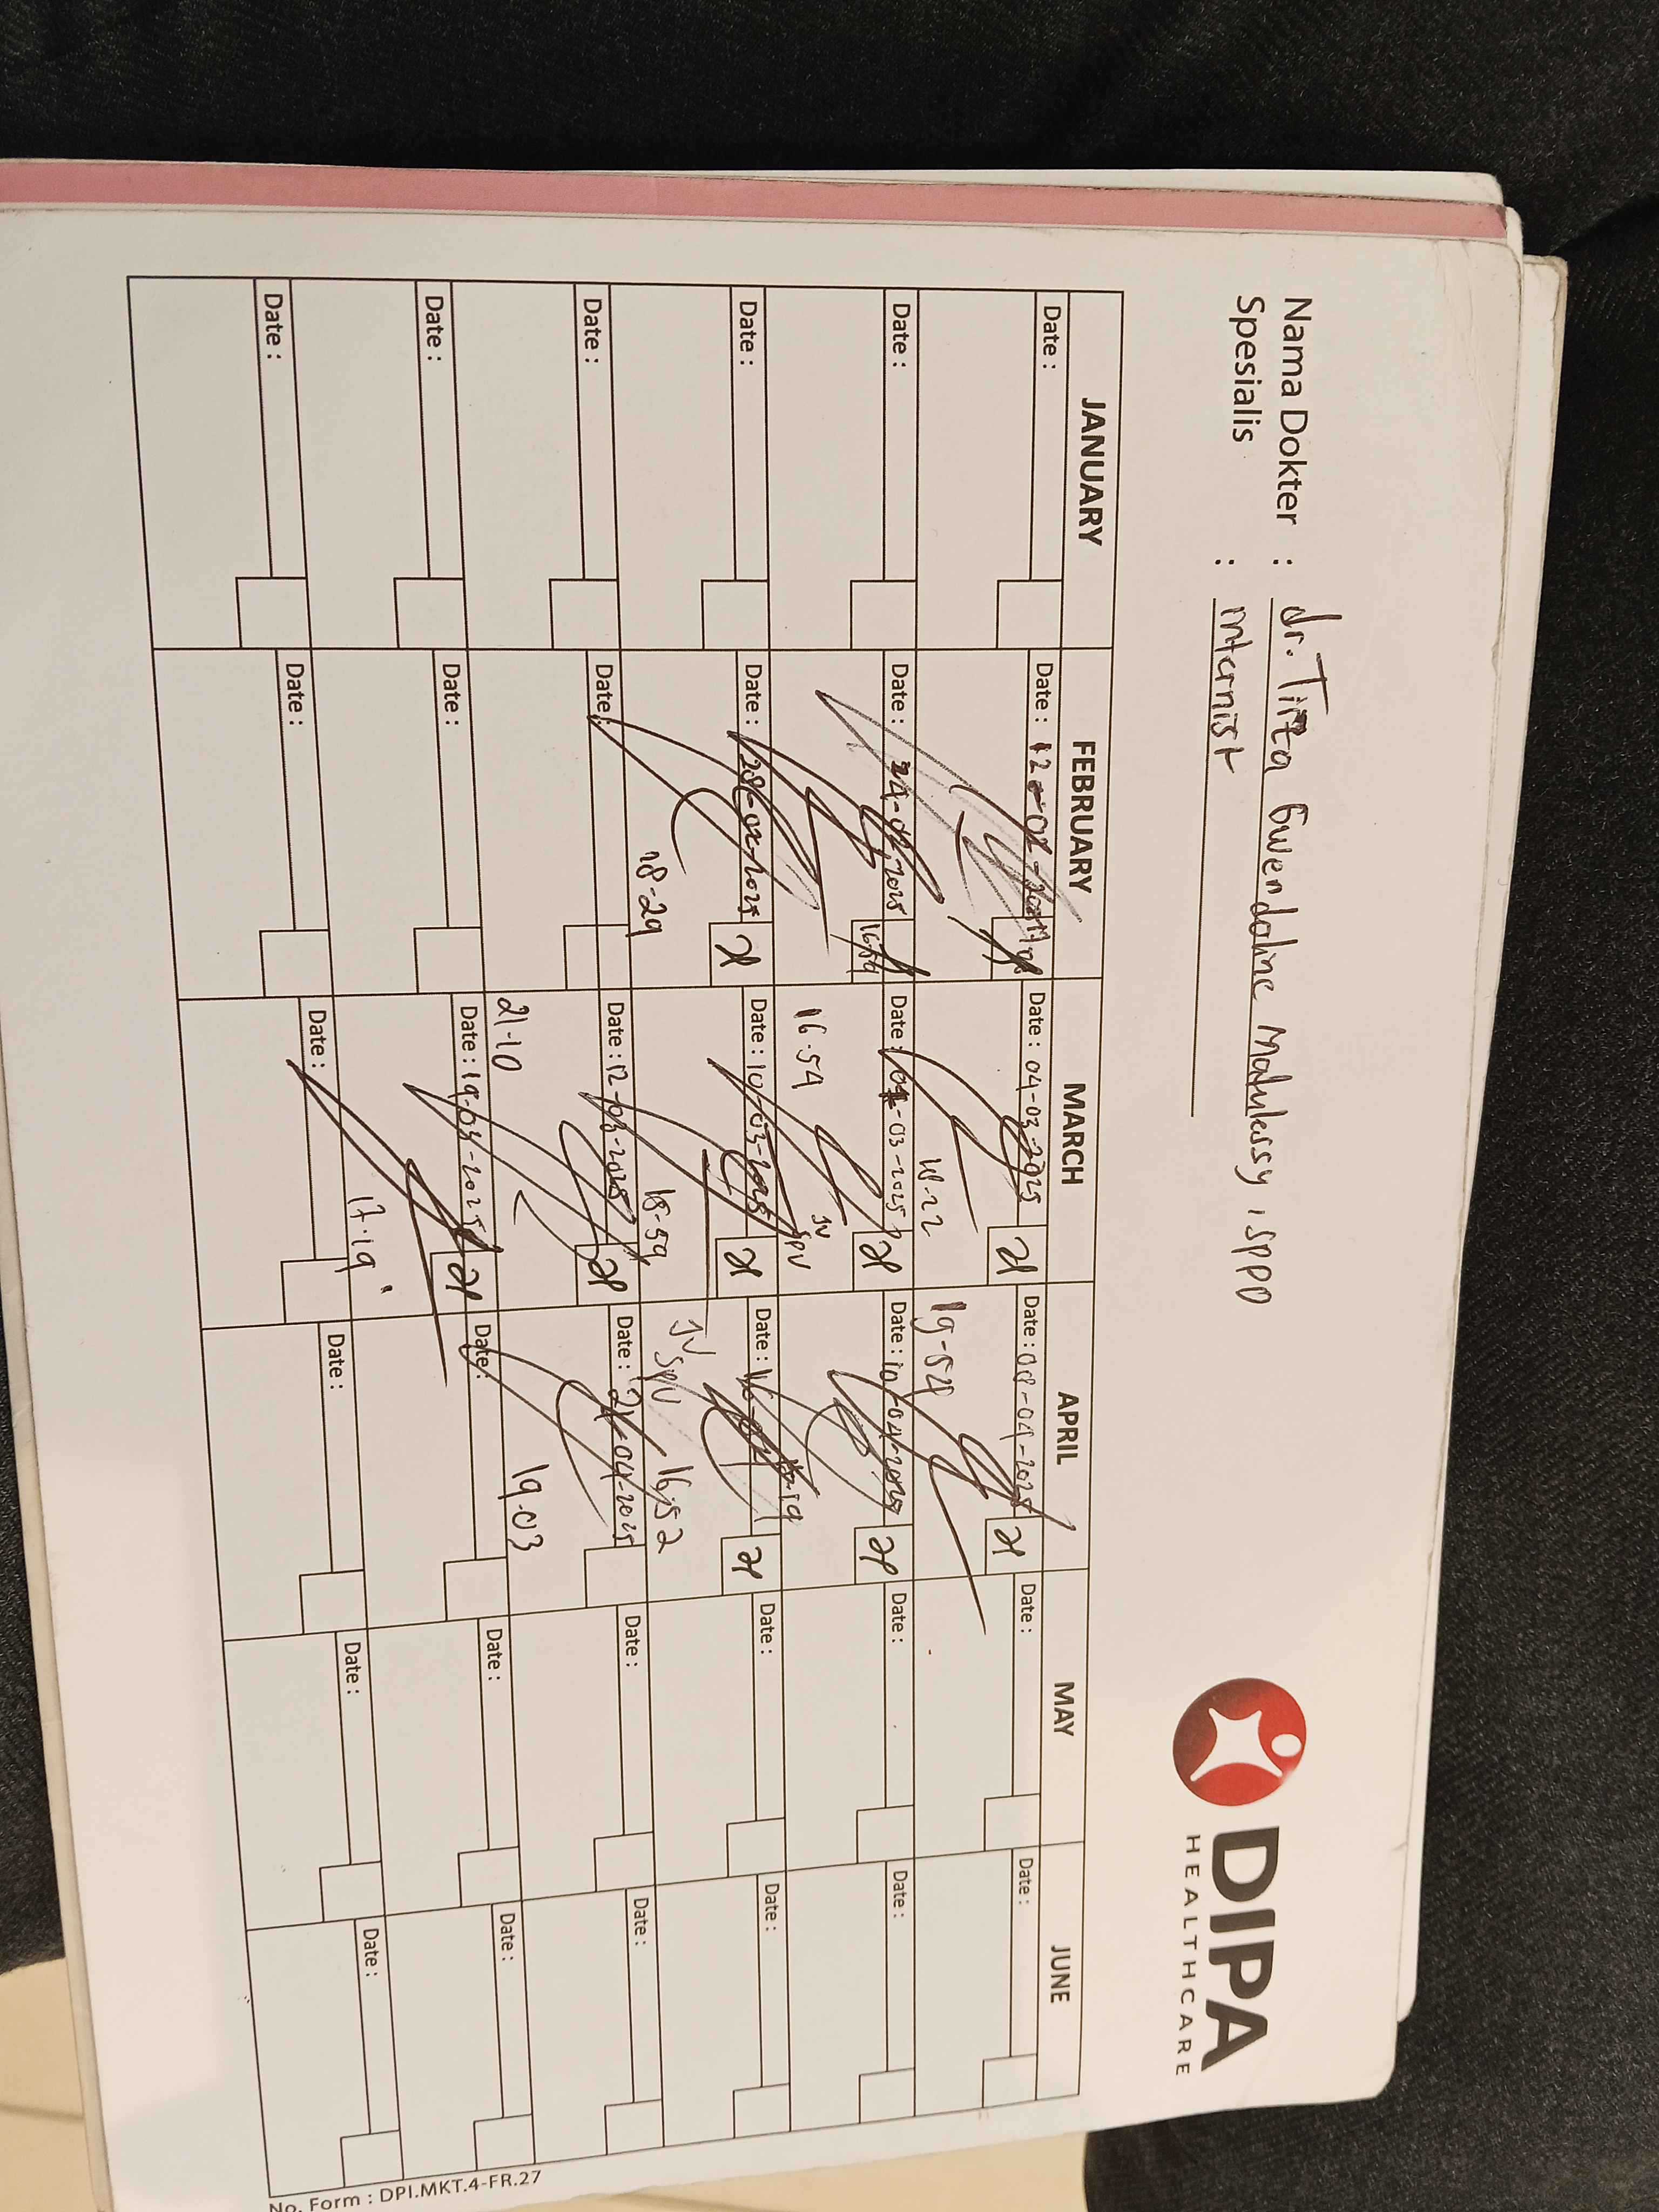 Nama Dokter : dr. Tirta Gwendoline Matulessy, SPPD
Spesialis : Internist
DIPA
HEALTHCARE
JANUARY FEBRUARY MARCH APRIL MAY JUNE
Date : Date : 12-02-2025 Date : 04-03-2025 Date : 08-04-2025 Date : Date :
18-22 19-54
Date : Date : 24-02-2025 16.59 Date : 03-2025 Date : 10-04-2025 Date : Date :
16.54 JV SPV 17.19
Date : Date : 28-02-2025 Date : 10-03-2025 Date : 16-04 Date : Date :
18-29 18-59 JV SPV 16.52
Date : Date : Date : 12-03-2025 Date : 21-04-2025 Date : Date :
21-10 19.03
Date : Date : Date : 19-03-2025 Date : Date : Date :
17.19
Date : Date : Date : Date : Date : Date :
No. Form : DPI.MKT.4-FR.27